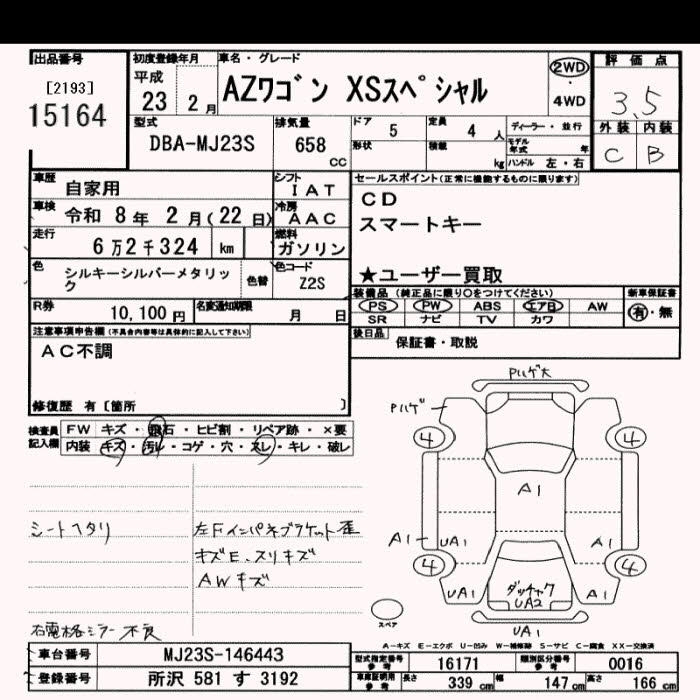 出品番号
[2193]
15164
初度登録年月
平成
23 2月
車名・グレード
AZワゴン XSスペシャル
2WD
・
4WD
評価点
3.5
外装 内装
C B
型式
DBA-MJ23S
排気量
658
CC
ドア 5
定員 4人
ディーラー・並行
形状
積載 kg
モデル年式 年
ハンドル 左・右
車歴 自家用
シフト IAT
車検 令和 8年 2月(22日)
冷房 AAC
走行 6万2千324 km
燃料 ガソリン
色 シルキーシルバーメタリック
色替
色コード Z2S
R券 10,100円
名変通知期限 月 日
セールスポイント(正常に機能するものに限ります)
CD
スマートキー
★ユーザー買取
装備品(純正品に限り○をつけてください)
新車保証書
PS PW ABS エアB AW
有・無
SR ナビ TV カワ
後日品 保証書・取説
注意事項申告欄(不具合内容等は具体的に記入して下さい)
AC不調
修復歴 有[箇所 ]
検査員記入欄
FW キズ・飛石・ヒビ割・リペア跡・×要
内装 キズ・汚れ・コゲ・穴・スレ・キレ・破レ
シートヘタリ
左Fインパネブラケット歪
キズE、スリキズ
AWキズ
右電格ミラー不良
Pハゲ大
Pハゲ
4
4
A1
A1
UA1
A1
4
4
UA1
ダッチャク
UA2
A1
UA1
スペア
A-キズ E-エクボ U-凹み W-補修跡 S-サビ C-腐食 XX-交換済
車台番号 MJ23S-146443
登録番号 所沢 581 す 3192
型式指定番号 参考 16171
類別区分番号 参考 0016
車庫証明用 参考 長さ 339cm 幅 147cm 高さ 166cm